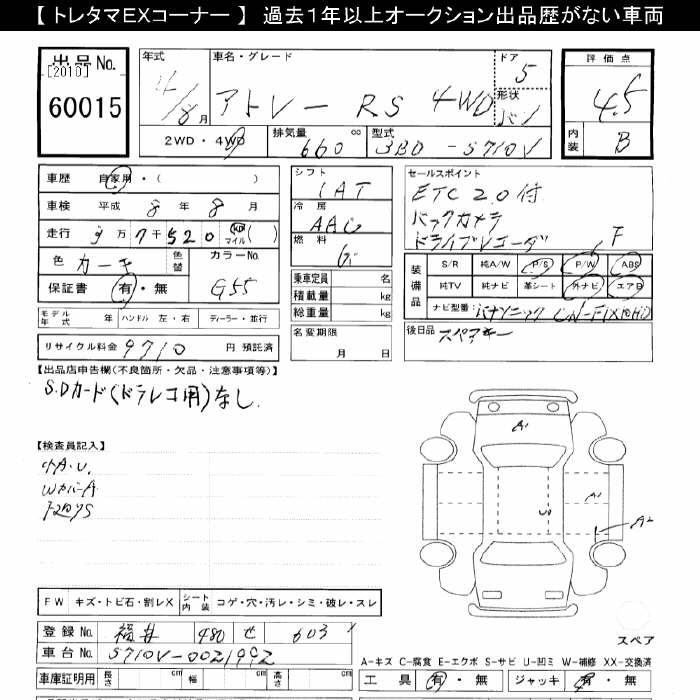 【 トレタマEXコーナー 】 過去1年以上オークション出品歴がない車両
出品 No.
[2010]
60015
年式
8月
車名・グレード
アトレー RS 4WD
ドア
5
形状
バン
2WD・4WD
排気量 660 cc
型式 3BD-S710V
評価点
4.5
内装 B
車歴 自家用・( )
車検 平成 8年 8月
走行 9万7千520 km マイル ( )
色 カーキ 色替
カラーNo. G55
保証書 有・無
モデル年式 年 ハンドル 左・右 ディーラー・並行
リサイクル料金 9710 円 預託済
シフト
IAT
冷房
AAC
燃料
ガ
乗車定員 名
積載量 kg
総重量 kg
名変期限
月 日
セールスポイント
ETC2.0付
バックカメラ
ドライブレコーダ F
装備品
S/R 純A/W P/S P/W ABS
純TV 純ナビ 革シート 外ナビ エアB
ナビ型番 パナソニック CN-F1X10HD
後日品 スペアキー
【出品店申告欄(不良箇所・欠品・注意事項等)】
S.Dカード(ドラレコ用)なし.
【検査員記入】
小A.U.
WカバーA
FW キズ・トビ石・割レX シート内装 コゲ・穴・汚レ・シミ・破レ・スレ
登録 No. 福井 480 せ 603
車台 No. S710V-0021992
車庫証明用 長さ cm 幅 cm 高さ cm
A1
A1
A2
スペア
A-キズ C-腐食 E-エクボ S-サビ U-凹ミ W-補修 XX-交換済
工具 有・無 ジャッキ 有・無